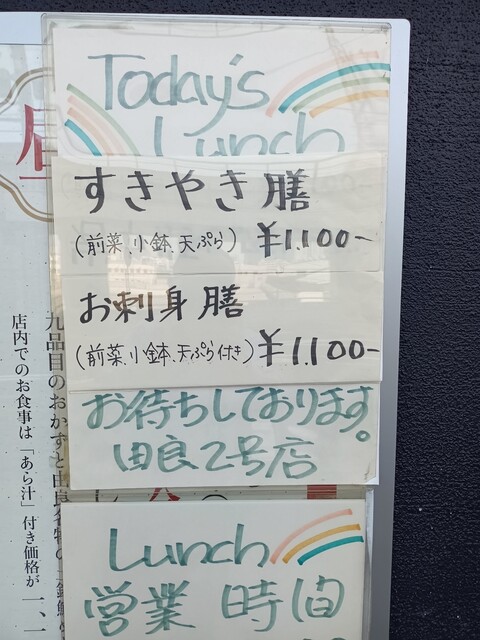 Today's
Lunch
すきやき膳
(前菜、小鉢、天ぷら) ¥1.100-
お刺身膳
(前菜、小鉢、天ぷら付き) ¥1.100-
お待ちしております。
由良2号店
Lunch
営業時間
九品目のおかずと由良名物の
店内でのお食事は「あら汁」付き価格が一、一